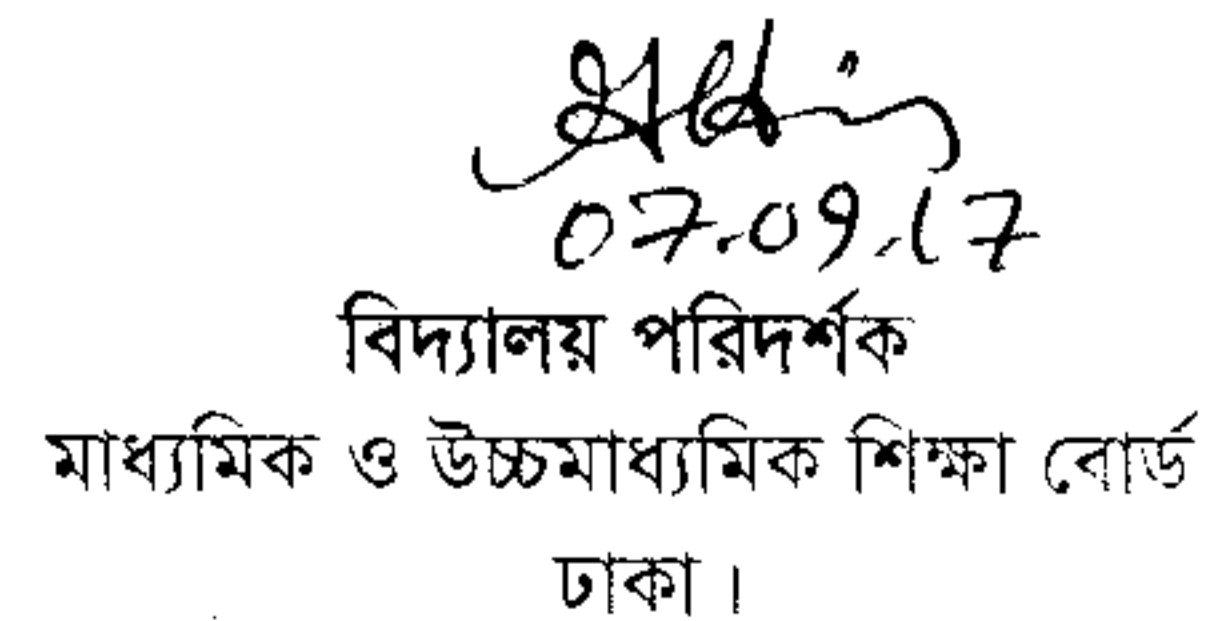 07.09.17
বিদ্যালয় পরিদর্শক
মাধ্যমিক ও উচ্চমাধ্যমিক শিক্ষা বোর্ড
ঢাকা।